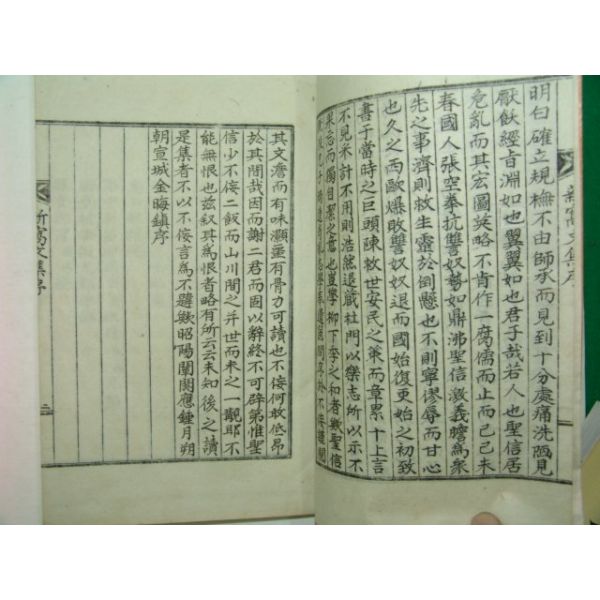 明白確立規橅不由師承而見到十分處痛洗陋見
厭飫經旨淵如也翼翼如也君子哉若人也聖信居
危亂而其宏圖英略不肯作一腐儒而止而已己未
春國人張空拳抗讐奴勢如鼎沸聖信激義膽爲衆
先之事濟則救生靈於倒懸也不則寧僇辱而甘心
也久之西歐爆敗讐奴奴退而國始復更始之初致
書于當時之巨頭陳救世安民之策而章累十上言
不見米計不用則浩然退藏杜門以樂志所以示不
果忘而獨自潔之意也豈學柳下季之和者歟聖信
其文澹而有味灝噩有骨力可讀也不侫何敢低昂
於其間哉因而謝二君而固以辭終不可辟第惟聖
信少不侫二飯而山川間之并世而未之一覩耶不
能無恨也玆叙其爲恨者略有所云云未知後之讀
是集者不以不侫言爲不韙歟昭陽單閼應鍾月朔
朝宣城金晦鎭序
新窩文集序
二